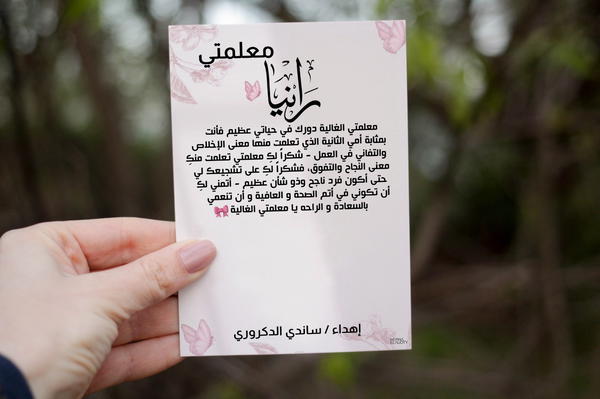 معلمتي
رانيا
معلمتي الغالية دورك في حياتي عظيم فأنت
بمثابة أمي الثانية الذي تعلمت منها معنى الإخلاص
والتفاني في العمل - شكراً لكِ معلمتي تعلمت منكِ
معنى النجاح والتفوق، فشكراً لكِ على تشجيعك لي
حتى أكون فرد ناجح وذو شأن عظيم - أتمني لكِ
أن تكوني في أتم الصحة و العافية و أن تنعمي
بالسعادة و الراحه يا معلمتي الغالية
إهداء / ساندي الدكروري